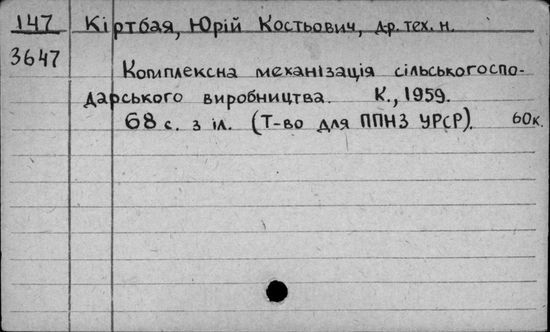 147 Кіртбая, Юрій Костьович, др. тех. н.
3647
Комплексна механізація сільськогоспо-
дарського виробництва. К., 1959.
68 с. з іл. (Т-во для ППНЗ УРСР). 60к.